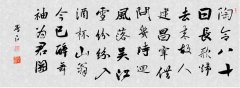 陶令八十
日長歌歸
去來故人
建昌宰借
問幾時迴
風落吳江
雪紛紛入
酒杯山翁
今已醉舞
袖為君開